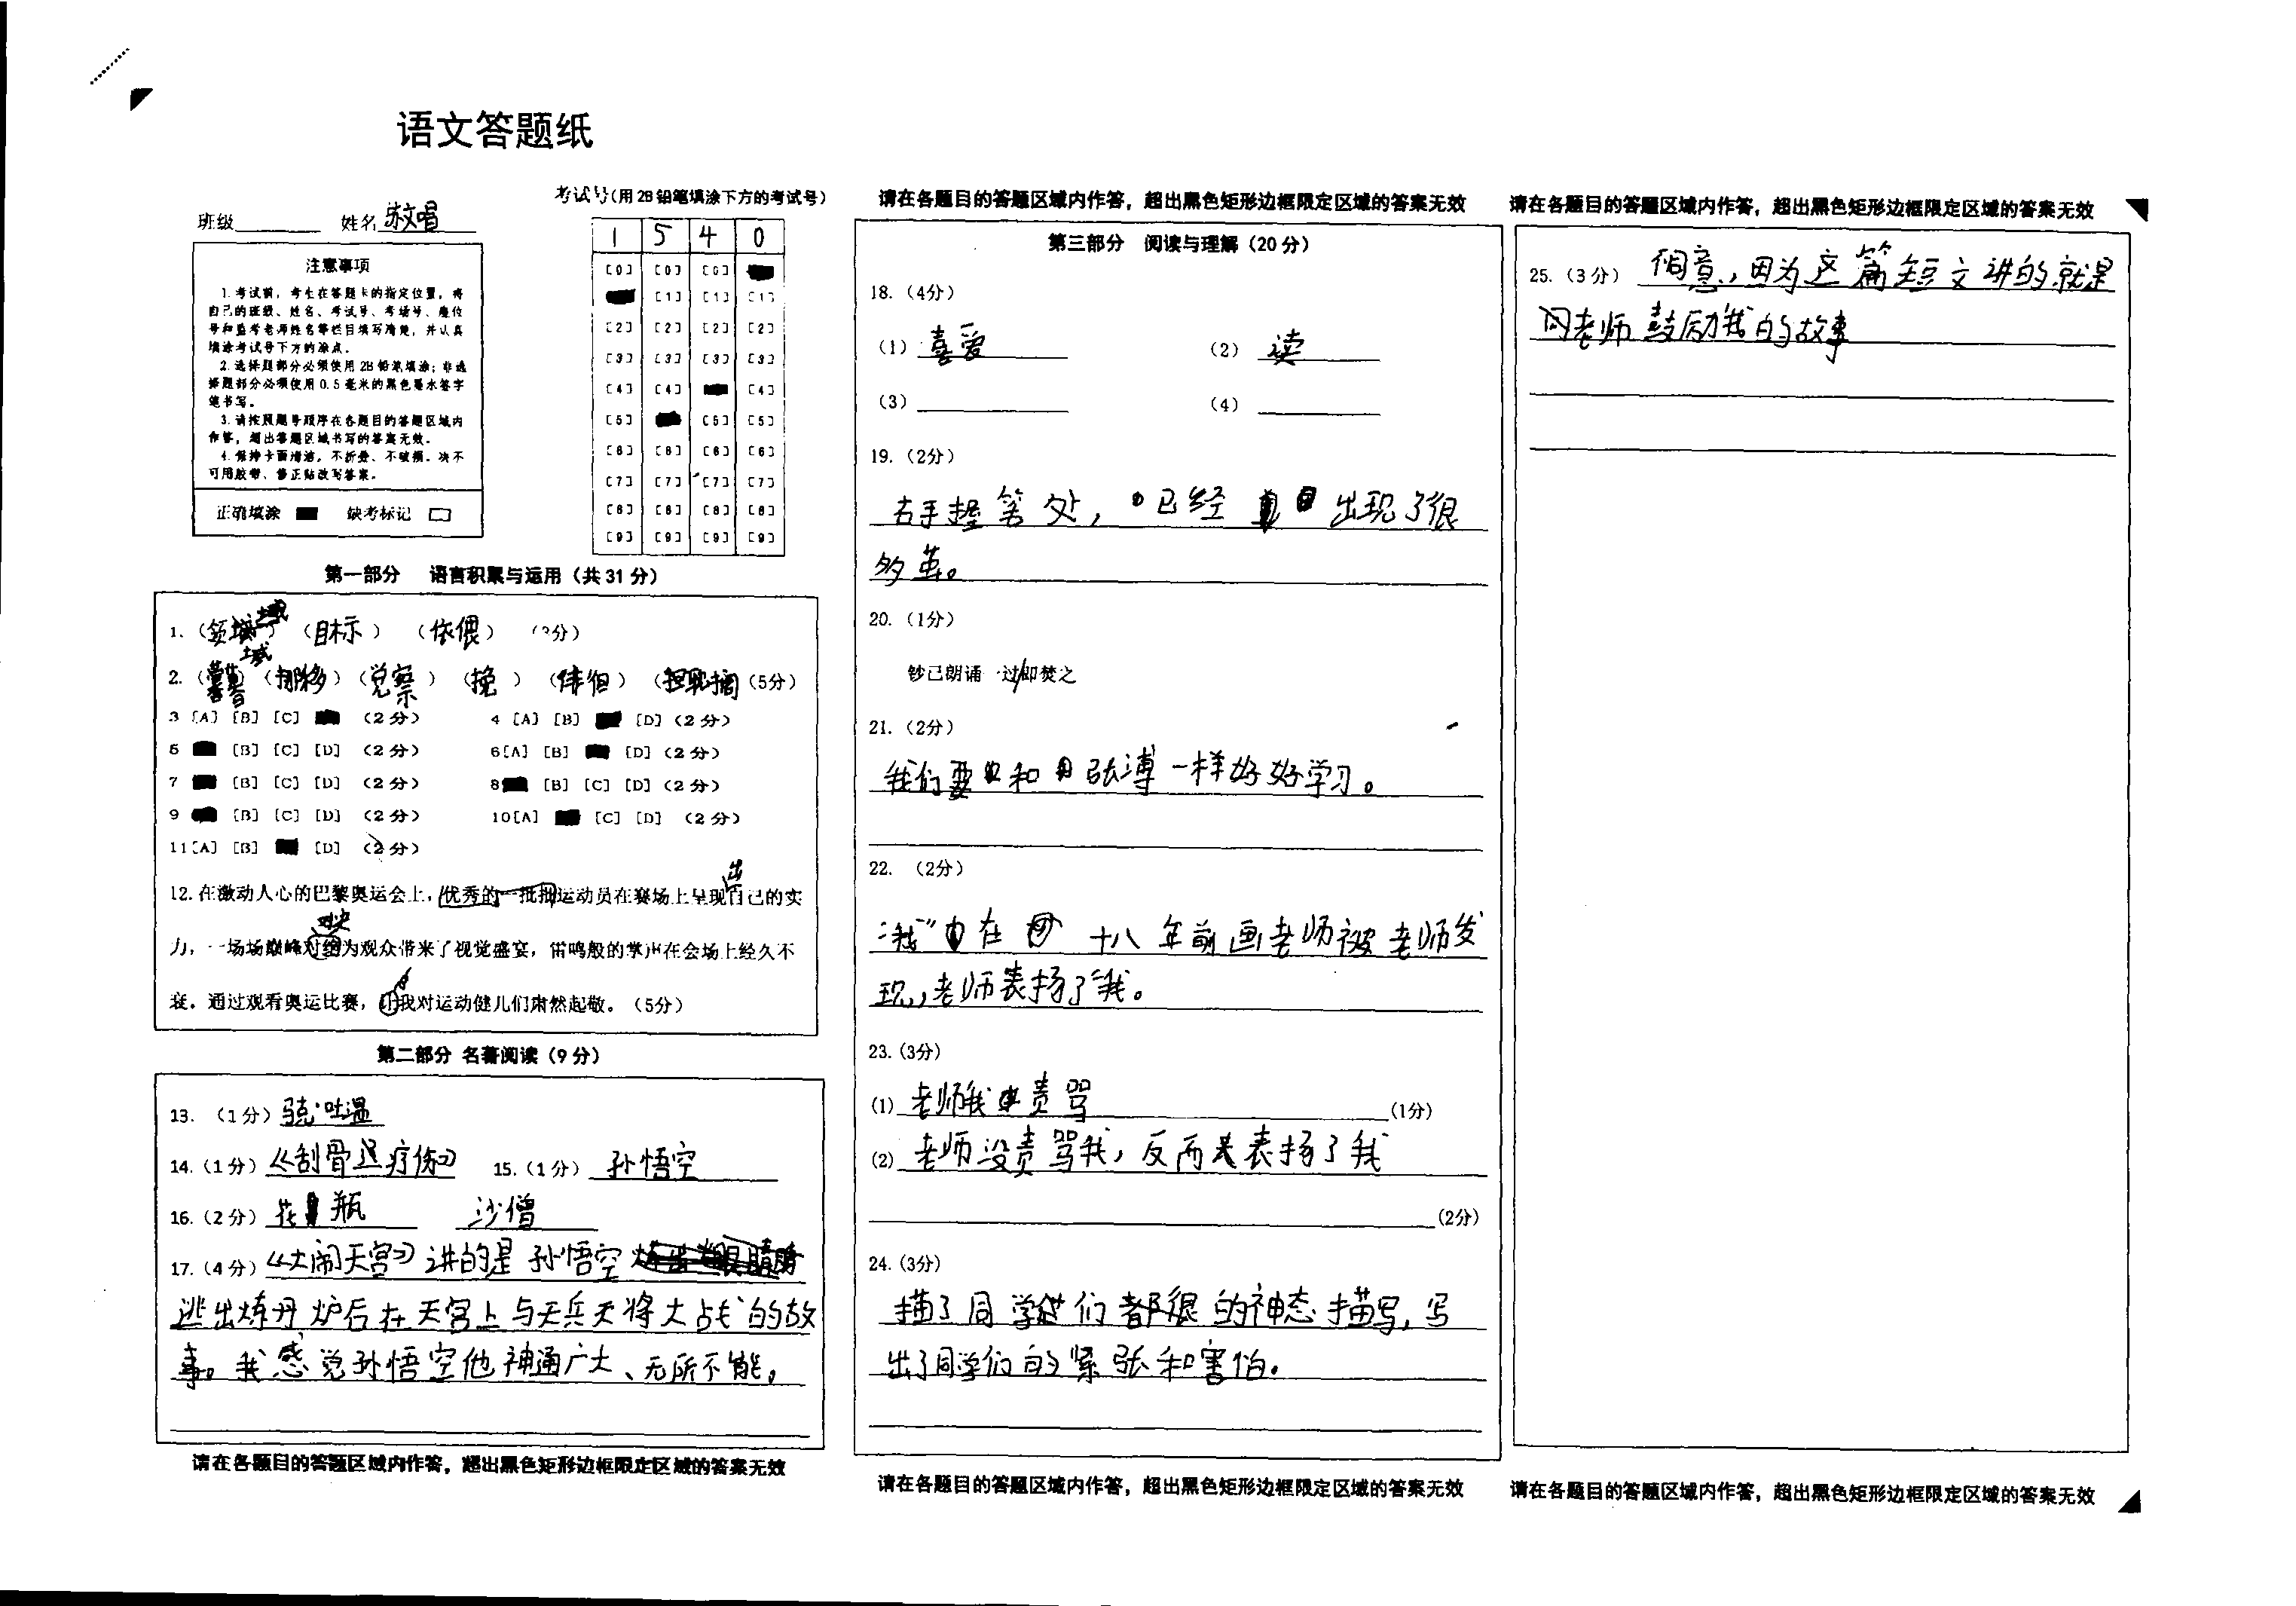 语文答题纸
班级 姓名
考试号(用2B铅笔填涂下方的考试号)
1 5 4 0
[0] [0] [0]
[1] [1] [1]
[2] [2] [2] [2]
[3] [3] [3] [3]
[4] [4] [4]
[5] [5] [5]
[6] [6] [6] [6]
[7] [7] [7] [7]
[8] [8] [8] [8]
[9] [9] [9] [9]
注意事项
1.考试前,考生在答题卡的指定位置,将
自己的班级、姓名、考试号、考场号、座位
号和监考老师姓名等栏目填写清楚,并认真
填涂考试号下方的涂点。
2.选择题部分必须使用2B铅笔填涂;非选
择题部分必须使用0.5毫米的黑色墨水签字
笔书写。
3.请按照题号顺序在各题目的答题区域内
作答,超出答题区域书写的答案无效。
4.保持卡面清洁,不折叠、不破损。决不
可用胶带、修正贴改写答案。
正确填涂 缺考标记
第一部分 语言积累与运用(共31分)
1.(领域)(目标)(依偎)
2.( )(挪移)(觉察)(挽)(徘徊)( 摘(5分)
3 [A] [B] [C] (2分) 4 [A] [B] [D] (2分)
5 [B] [C] [D] (2分) 6[A] [B] [D] (2分)
7 [B] [C] [D] (2分) 8 [B] [C] [D] (2分)
9 [B] [C] [D] (2分) 10[A] [C] [D] (2分)
11[A] [B] [D] (2分)
出
12.在激动人心的巴黎奥运会上,优秀的一批批运动员在赛场上呈现自己的实
决
力,一场场巅峰对绝为观众带来了视觉盛宴,雷鸣般的掌声在会场上经久不
衰。通过观看奥运比赛,让我对运动健儿们肃然起敬。(5分)
第二部分 名著阅读(9分)
13.(1分)骆吐温
14.(1分)《刮骨 疗伤》 15.(1分)孙悟空
16.(2分)花 瓶 沙僧
17.(4分)《大闹天宫》讲的是孙悟空
逃出炼丹炉后在天宫上与天兵天将大战的故
事。我感觉孙悟空他神通广大、无所不能。
请在各题目的答题区域内作答,超出黑色矩形边框限定区域的答案无效
请在各题目的答题区域内作答,超出黑色矩形边框限定区域的答案无效
第三部分 阅读与理解(20分)
18.(4分)
(1)喜爱 (2)读
(3) (4)
19.(2分)
右手握笔处,已经 出现了很
多茧。
20.(1分)
钞已朗诵一过/即焚之
21.(2分)
我们要 和 张溥一样好好学习。
22.(2分)
"我" 在 十八年前画老师被老师发
现,老师表扬了我。
23.(3分)
(1)老师我 责骂 (1分)
(2)老师没责骂我,反而 表扬了我
(2分)
24.(3分)
描了同学们都很的神态描写,写
出了同学们的紧张和害怕。
请在各题目的答题区域内作答,超出黑色矩形边框限定区域的答案无效
请在各题目的答题区域内作答,超出黑色矩形边框限定区域的答案无效
25.(3分)同意,因为这篇短文讲的就是
老师鼓励我的故事
请在各题目的答题区域内作答,超出黑色矩形边框限定区域的答案无效